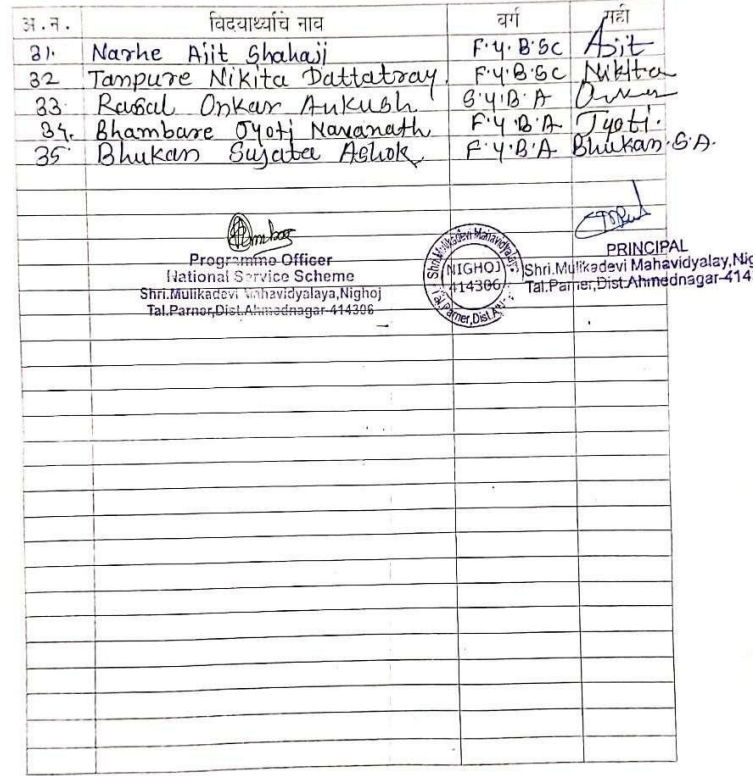 अ.न. विद्यार्थ्याचे नाव वर्ग सही
31. Narhe Ajit Shahaji F.Y.B.Sc Ajit
32 Tanpure Nikita Dattatray. F.Y.B.Sc Nikita
33. Rasal Onkar Ankush S.Y.B.A
34. Bhambare Jyoti Navanath F.Y.B.A Jyoti.
35. Bhukan Sujata Ashok F.Y.B.A Bhukan.S.A.
Programme Officer
National Service Scheme
Shri.Mulikadevi Mahavidyalaya,Nighoj
Tal.Parner,Dist.Ahmednagar-414306
Shri.Mulikadevi Mahavidyalaya
NIGHOJ
414306
Tal.Parner,Dist.A
PRINCIPAL
Shri.Mulikadevi Mahavidyalay,Nig
Tal.Parner,Dist.Ahmednagar-414